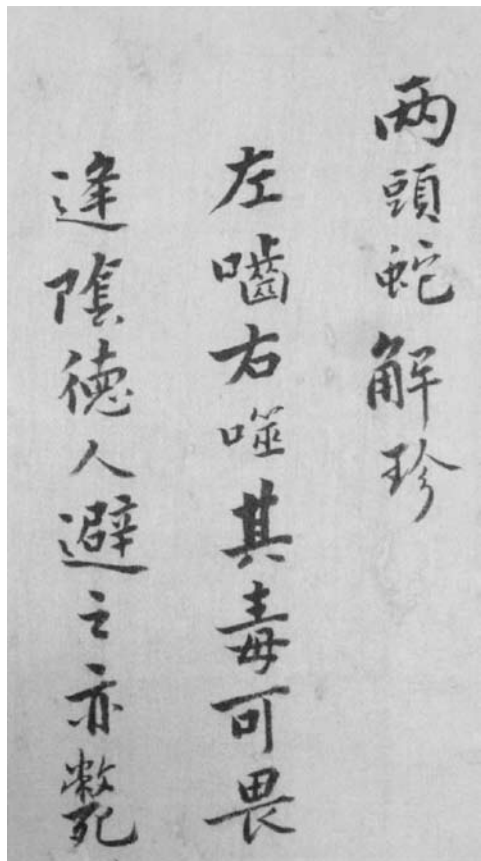 両頭蛇解珍
左嚙右噬其毒可畏
逢陰徳人避之亦斃